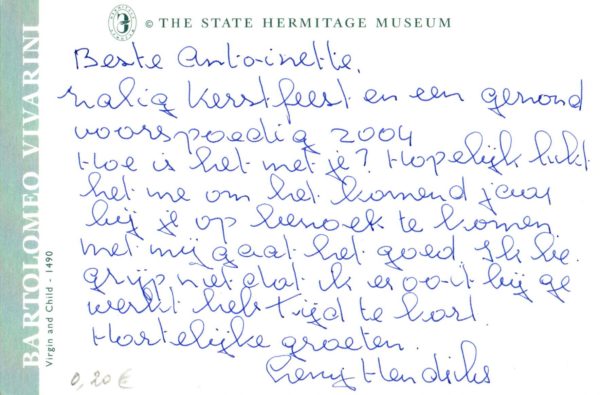 © THE STATE HERMITAGE MUSEUM
Beste Antoinette,
Zalig Kerstfeest en een gezond
voorspoedig 2004
Hoe is het met je? Hopelijk lukt
het me om het komend jaar
bij je op bezoek te komen.
Met mij gaat het goed. Ik be
grijp niet dat ik er ooit bij ge
werkt heb tijd te kort.
Hartelijke groeten.
Leny Hendriks
BARTOLOMEO VIVARINI
Virgin and Child - 1490
0,20 €